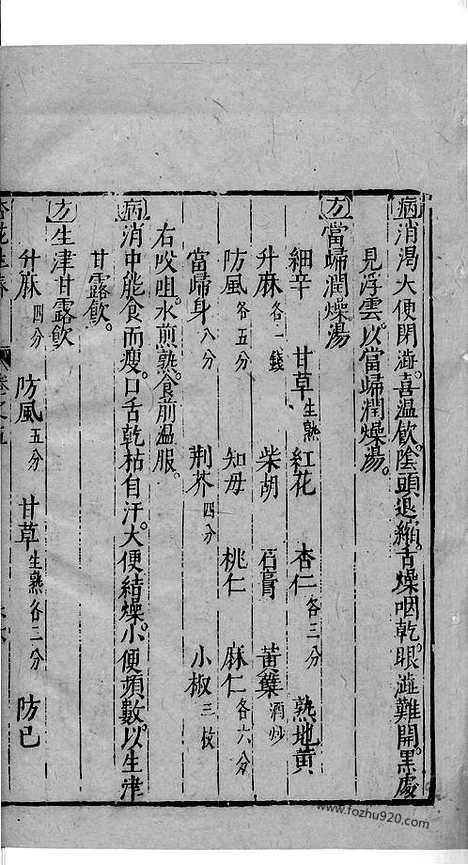 病消渴大便閉澁喜温飲陰頭退縮舌燥咽乾眼澁難開黑處
見浮雲以當歸潤燥湯
方當歸潤燥湯
細辛 甘草生熟 紅花 杏仁各三分 熟地黄
升麻各一錢 柴胡 石膏 黄蘗酒炒
防風各五分 知母 桃仁 麻仁各六分
當歸身八分 荆芥四分 小椒三枝
右㕮咀水煎熟食前温服
病消中能食而瘦口舌乾枯自汗大便結燥小便頻數以生津
甘露飲
方生津甘露飲
升麻四分 防風五分 甘草生熟各二分 防已
www.fozhu920.com